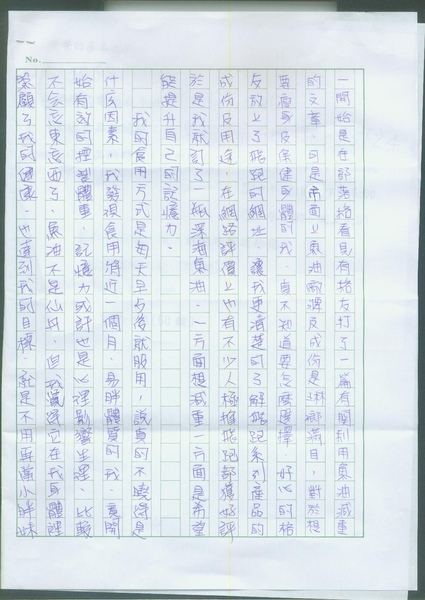 No.
一開始是在部落格看見有格友打了一篇有關利用魚油減重
的文章。可是市面上魚油廠牌及成份是琳瑯滿目,對於想
要瘦身及保健身體的我。真不知道要怎麼選擇。好心的格
友放上了熊跑的網址。讓我更清楚的了解熊跑系列產品的
成份及用途。在網路評價上也有不少人極推熊跑都獲好評
於是我就訂了一瓶深海魚油。一方面想減重一方面是希望
能提升自己的記憶力。
我的食用方式是每天早夕後就服用,說真的不曉得是
什麼因素,我發現食用將近一個月。易胖體質的我。竟開
始有效的控制體重。記憶力或許也是心理影響生理。比較
不會忘東忘西了。魚油不是仙丹。但我覺得它在我身體裡
照顧了我的健康。也達到我的目標。就是不用再當小胖妹